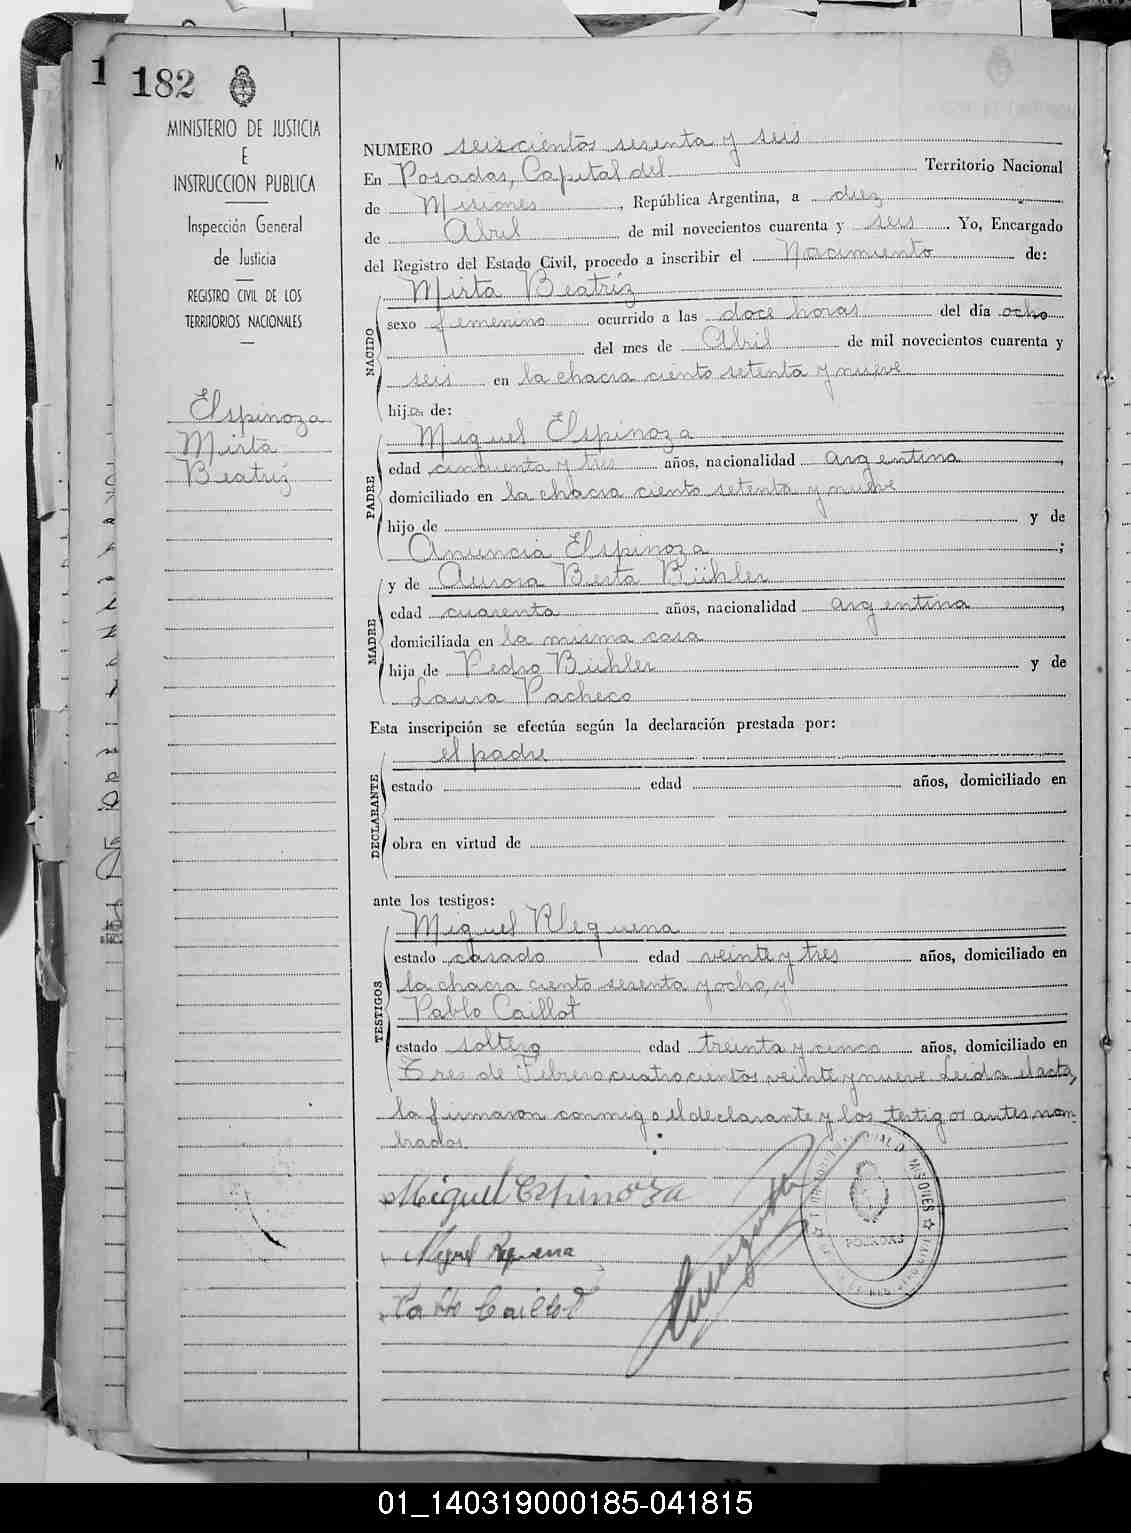 1
182
MINISTERIO DE JUSTICIA
E
INSTRUCCION PUBLICA
Inspección General
de Justicia
REGISTRO CIVIL DE LOS
TERRITORIOS NACIONALES
Espinoza
Mirta
Beatríz
NUMERO seiscientos sesenta y seis
En Posadas, Capital del Territorio Nacional
de Misiones, República Argentina, a diez
de Abril de mil novecientos cuarenta y seis. Yo, Encargado
del Registro del Estado Civil, procedo a inscribir el Nacimiento de:
NACIDO
Mirta Beatríz
sexo femenino ocurrido a las doce horas del día ocho
del mes de Abril de mil novecientos cuarenta y
seis en la chacra ciento setenta y nueve
hija de:
PADRE
Miguel Espinoza
edad cincuenta y tres años, nacionalidad argentina,
domiciliado en la chacra ciento setenta y nueve
hijo de y de
Anuncia Espinoza;
MADRE
y de Aurora Berta Bühler
edad cuarenta años, nacionalidad argentina,
domiciliada en la misma casa
hija de Pedro Bühler y de
Laura Pacheco
Esta inscripción se efectúa según la declaración prestada por:
DECLARANTE
el padre
estado edad años, domiciliado en
obra en virtud de
ante los testigos:
TESTIGOS
Miguel Requena
estado casado edad veinte y tres años, domiciliado en
la chacra ciento sesenta y ocho, y
Pablo Caillot
estado soltero edad treinta y cinco años, domiciliado en
Tres de Febrero cuatrocientos veinte y nueve. Leída el acta,
la firmaron conmigo el declarante y los testigos antes nom-
brados.
Miguel Espinoza
Miguel Requena
Pablo Caillot
MISIONES
POSADAS
01_140319000185-041815